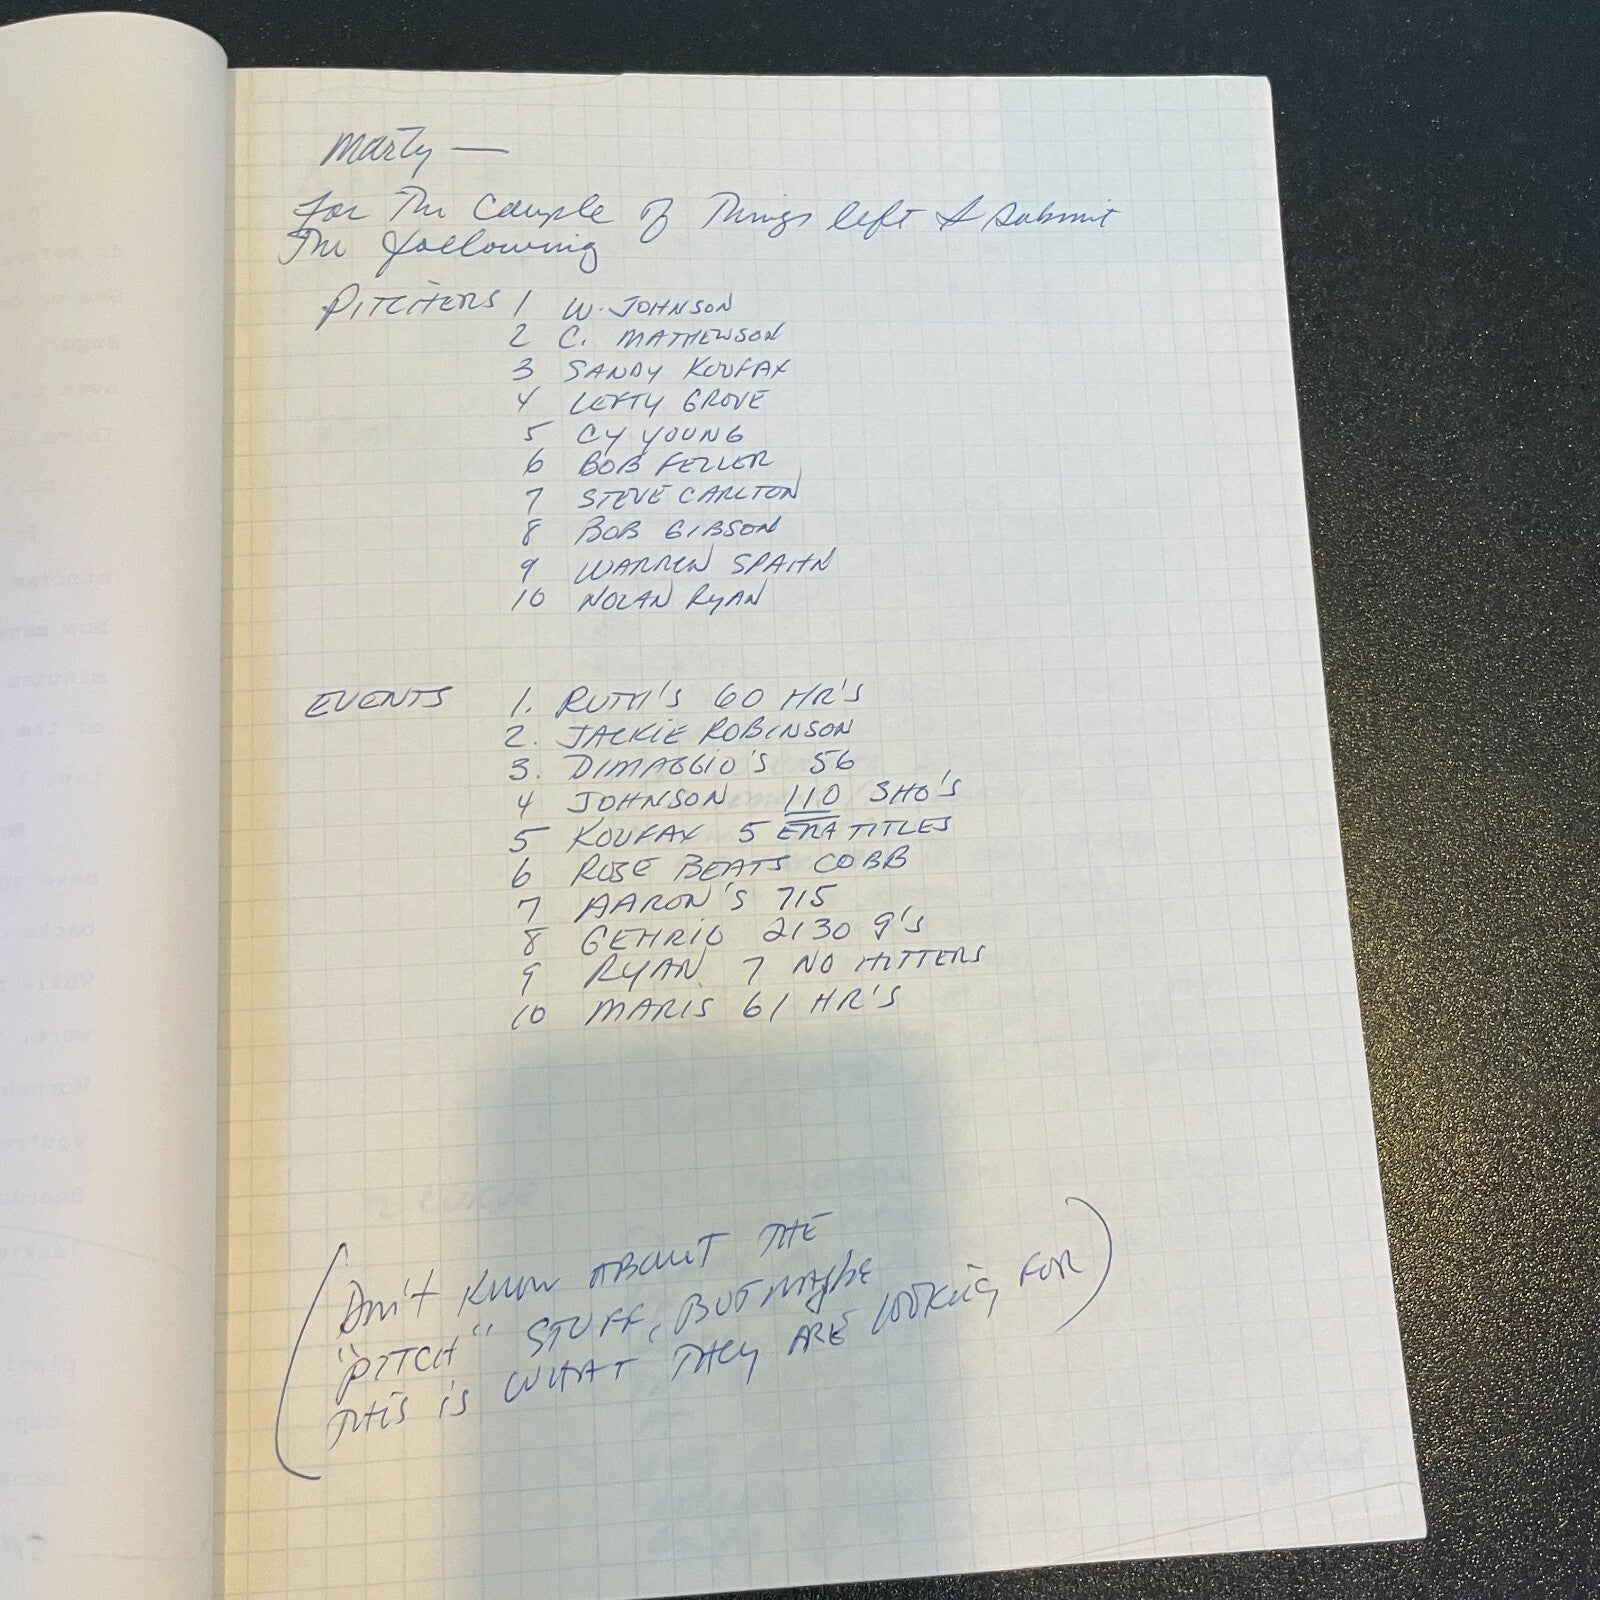 Marty —
For The Couple of Things left I submit
The following
PITCHERS 1 W. JOHNSON
2 C. MATHEWSON
3 SANDY KOUFAX
4 LEFTY GROVE
5 CY YOUNG
6 BOB FELLER
7 STEVE CARLTON
8 BOB GIBSON
9 WARREN SPAHN
10 NOLAN RYAN
EVENTS 1. RUTH'S 60 HR'S
2. JACKIE ROBINSON
3. DIMAGGIO'S 56
4 JOHNSON 110 SHO'S
5 KOUFAX 5 ERA TITLES
6 ROSE BEATS COBB
7 AARON'S 715
8 GEHRIG 2130 g's
9 RYAN 7 NO HITTERS
10 MARIS 61 HR'S
(Don't KNOW ABOUT THE
"PITCH" STUFF, BUT MAYBE
THIS IS WHAT THEY ARE LOOKING FOR)